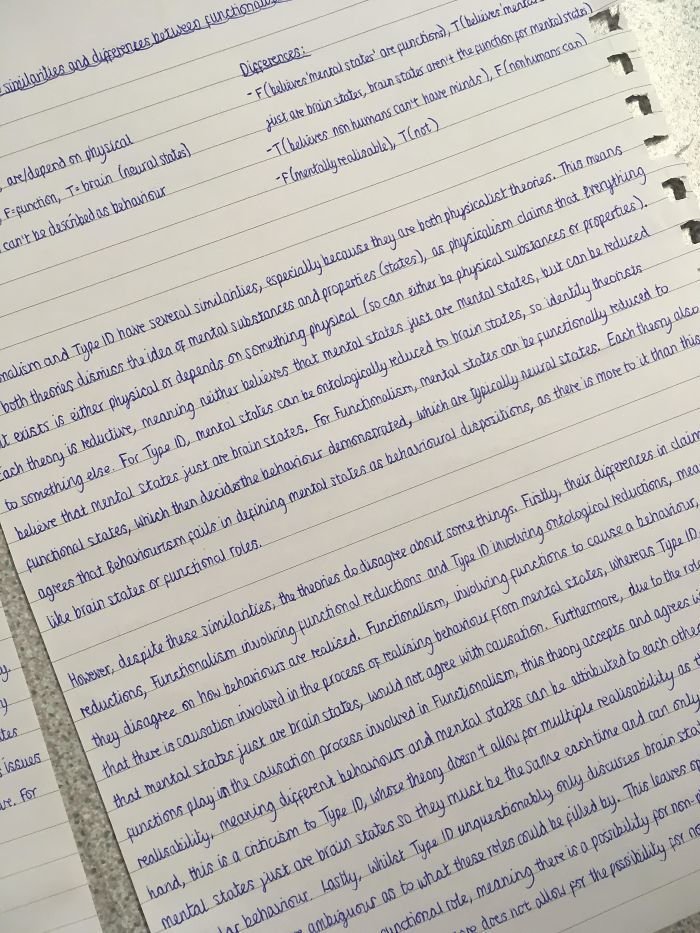 similarities and differences between functionalis
Differences:
- F(believes 'mental states' are functions), T(believes 'mental
just are brain states, brain states aren't the function for mental state)
- T(believes non humans can't have minds), F(nonhumans can)
- F(mentally realisable), T(not)
, are/depend on physical
, F=function, T=brain (neural states)
can't be described as behaviour
nalism and Type ID have several similarities, especially because they are both physicalist theories. This means
both theories dismiss the idea of mental substances and properties (states), as physicalism claims that everything
t exists is either physical or depends on something physical (so can either be physical substances or properties).
Each theory is reductive, meaning neither believes that mental states just are mental states, but can be reduced
to something else. For Type ID, mental states can be ontologically reduced to brain states, so identity theorists
believe that mental states just are brain states. For Functionalism, mental states can be functionally reduced to
functional states, which then decides the behaviour demonstrated, which are typically neural states. Each theory also
agrees that Behaviourism fails in defining mental states as behavioural dispositions, as there is more to it than this
like brain states or functional roles.
However, despite these similarities, the theories do disagree about some things. Firstly, their differences in claim
reductions, Functionalism involving functional reductions and Type ID involving ontological reductions, mea
they disagree on how behaviours are realised. Functionalism, involving functions to cause a behaviour,
that there is causation involved in the process of realising behaviour from mental states, whereas Type ID
that mental states just are brain states, would not agree with causation. Furthermore, due to the role
functions play in the causation process involved in Functionalism, this theory accepts and agrees wi
realisability, meaning different behaviours and mental states can be attributed to each other
hand, this is a criticism to Type ID, whose theory doesn't allow for multiple realisability as th
mental states just are brain states so they must be the same each time and can only
lar behaviour. Lastly, whilst Type ID unquestionably only discusses brain sta
ambiguous as to what these roles could be filled by. This leaves op
unctional role, meaning there is a possibility for non-
does not allow for the possibility for no
y
y
tes
issues
ve. For